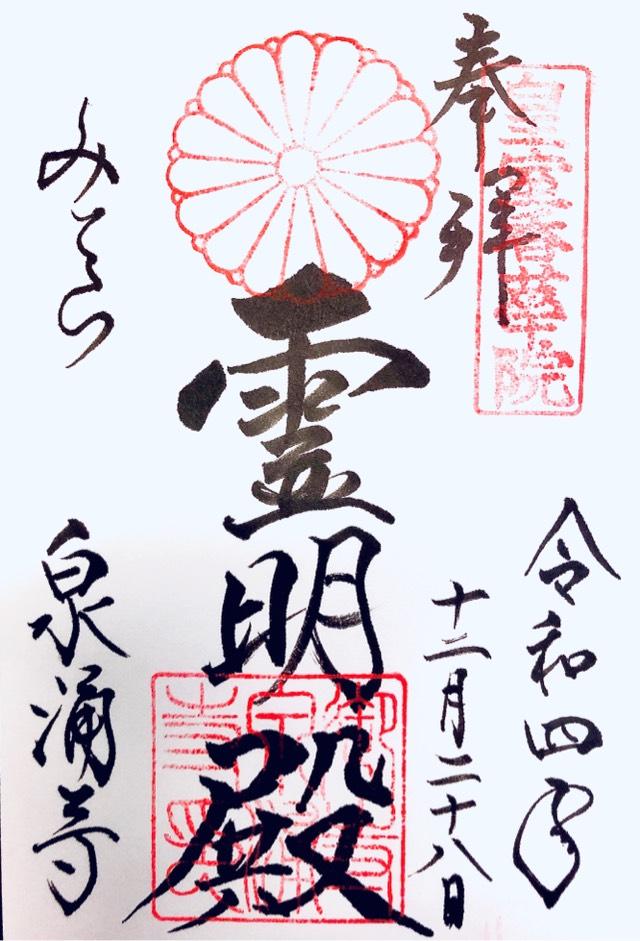 奉拝
皇室香華院
令和四年
十二月二十八日
霊明殿
みてら
泉涌寺